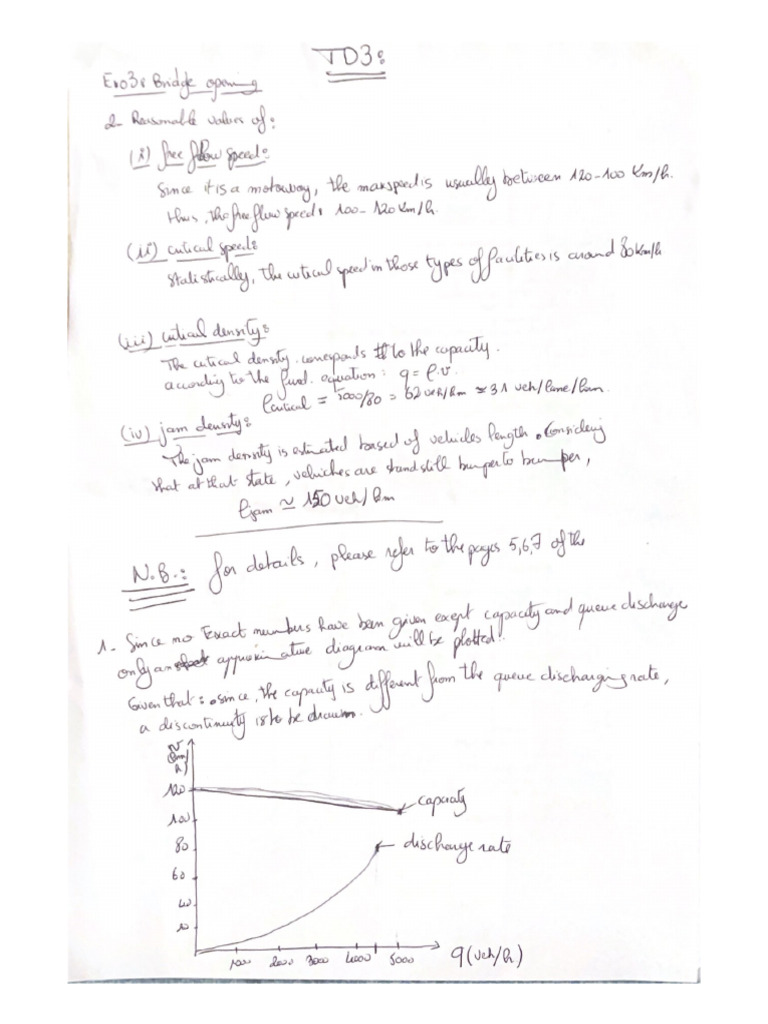 TD3:
Exo3: Bridge opening
2- Reasonable values of:
(i) free flow speed:
Since it is a motorway, the maxspeed is usually between 120-100 Km/h.
thus, the free flow speed: 100-120 Km/h.
(ii) critical speed:
Statistically, the critical speed in those types of facilities is around 80Km/h
(iii) critical density:
The critical density corresponds to the capacity.
according to the fund. equation: q = ρ.v.
ρcritical = 5000/80 = 62 veh/km ≃ 31 veh/lane/km.
(iv) jam density:
The jam density is estimated based of vehicles length. Considering
that at that state, vehicles are standstill bumper to bumper,
ρjam ≃ 150 veh/km
N.B.: for details, please refer to the pages 5,6,7 of the
1- Since no Exact numbers have been given exept capacity and queue discharge
only an approximative diagram will be plotted:
Given that: since, the capacity is different from the queue discharging rate,
a discontinuity is to be drawn.
v
(km/
h)
120
100
80
60
40
20
capacity
discharge rate
1000 2000 3000 4000 5000 q(veh/h)